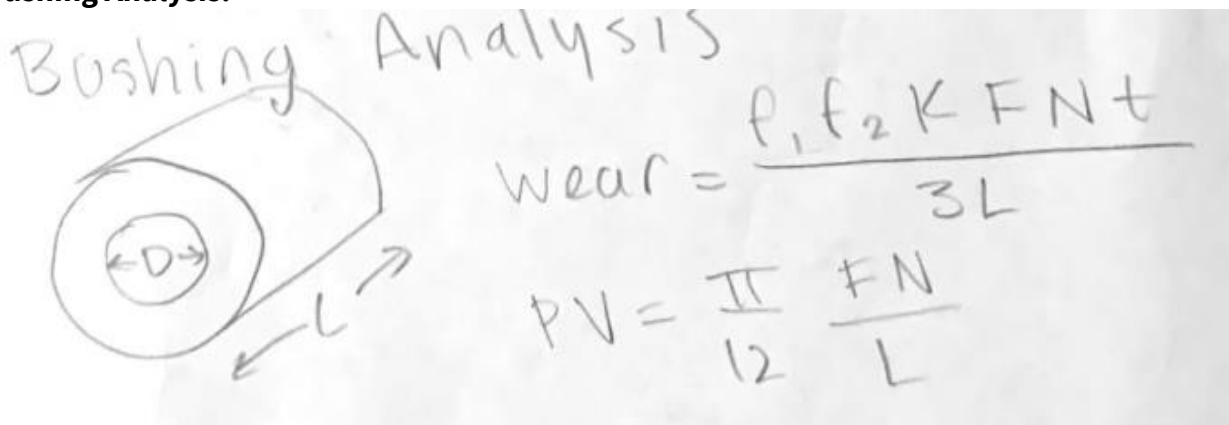 Bushing Analysis
wear = f₁ f₂ K F N t / 3L
PV = π/12 FN/L
D
L